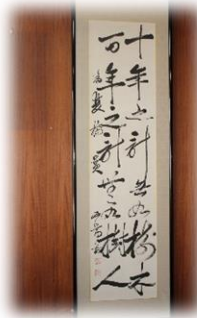 十年之計莫如樹木
百年之計莫如樹人